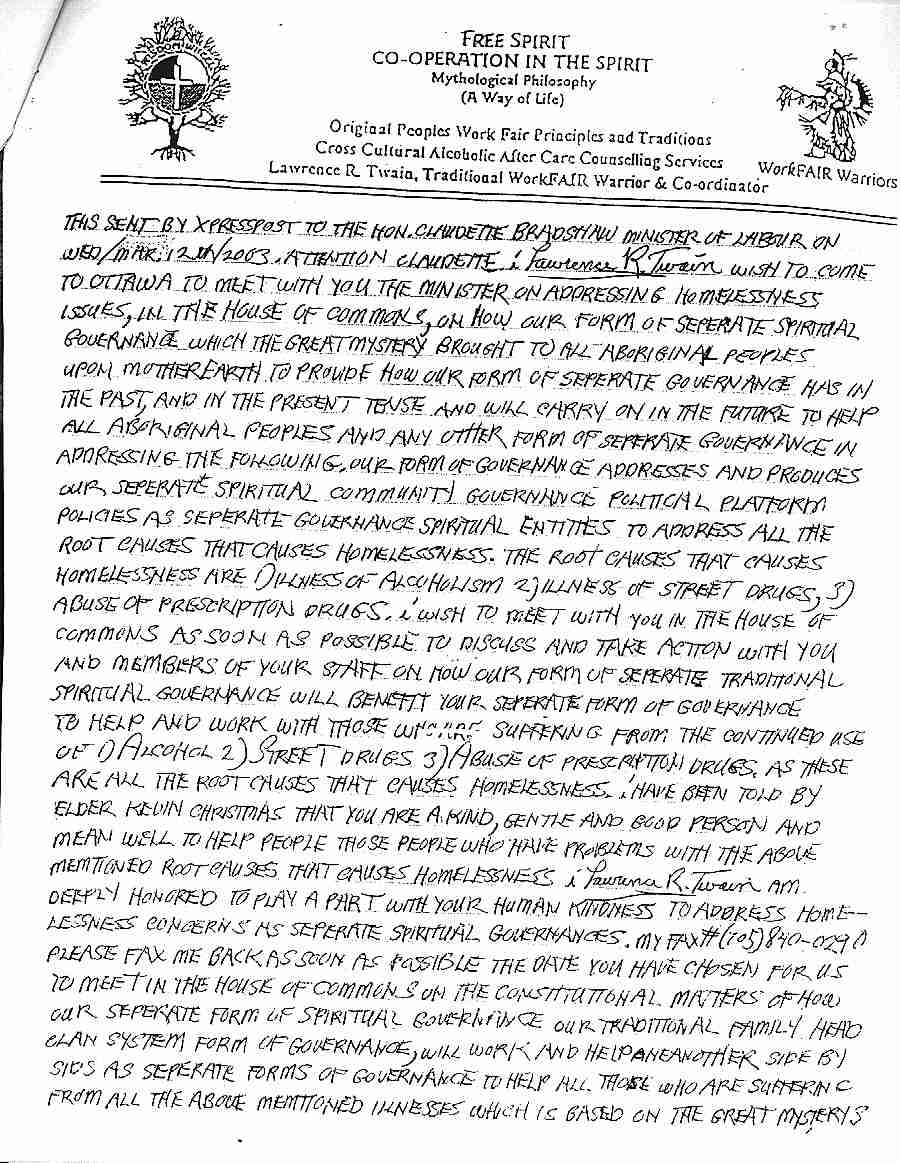 FREE SPIRIT
CO-OPERATION IN THE SPIRIT
Mythological Philosophy
(A Way of Life)
Original Peoples Work Fair Principles and Traditions
Cross Cultural Alcoholic After Care Counselling Services
Lawrence R. Twain, Traditional WorkFAIR Warrior & Co-ordinator
WorkFAIR Warriors
THIS SENT BY XPRESSPOST TO THE HON. CLAUDETTE BRADSHAW MINISTER OF LABOUR ON
WED/MAR. 12TH/2003. ATTENTION CLAUDETTE. i Lawrence R. Twain WISH TO COME
TO OTTAWA TO MEET WITH YOU THE MINISTER ON ADDRESSING HOMELESSNESS
ISSUES, IN THE HOUSE OF COMMONS, ON HOW OUR FORM OF SEPERATE SPIRITUAL
GOVERNANCE WHICH THE GREAT MYSTERY BROUGHT TO ALL ABORIGINAL PEOPLES
UPON MOTHER EARTH TO PROVIDE HOW OUR FORM OF SEPERATE GOVERNANCE HAS IN
THE PAST, AND IN THE PRESENT TENSE AND WILL CARRY ON IN THE FUTURE TO HELP
ALL ABORIGINAL PEOPLES AND ANY OTHER FORM OF SEPERATE GOVERNANCE IN
ADDRESSING THE FOLLOWING, OUR FORM OF GOVERNANCE ADDRESSES AND PRODUCES
OUR SEPERATE SPIRITUAL COMMUNITY GOVERNANCE POLITICAL PLATFORM
POLICIES AS SEPERATE GOVERNANCE SPIRITUAL ENTITIES TO ADDRESS ALL THE
ROOT CAUSES THAT CAUSES HOMELESSNESS. THE ROOT CAUSES THAT CAUSES
HOMELESSNESS ARE 1) ILLNESS OF ALCOHOLISM 2) ILLNESS OF STREET DRUGS, 3)
ABUSE OF PRESCRIPTION DRUGS. i WISH TO MEET WITH YOU IN THE HOUSE OF
COMMONS AS SOON AS POSSIBLE TO DISCUSS AND TAKE ACTION WITH YOU
AND MEMBERS OF YOUR STAFF ON HOW OUR FORM OF SEPERATE TRADITIONAL
SPIRITUAL GOVERNANCE WILL BENEFIT YOUR SEPERATE FORM OF GOVERNANCE
TO HELP AND WORK WITH THOSE WHO ARE SUFFERING FROM THE CONTINUED USE
OF 1) ALCOHOL 2) STREET DRUGS 3) ABUSE OF PRESCRIPTION DRUGS. AS THESE
ARE ALL THE ROOT CAUSES THAT CAUSES HOMELESSNESS. i HAVE BEEN TOLD BY
ELDER KEVIN CHRISTMAS THAT YOU ARE A KIND, GENTLE AND GOOD PERSON AND
MEAN WELL TO HELP PEOPLE THOSE PEOPLE WHO HAVE PROBLEMS WITH THE ABOVE
MEMTIONED ROOT CAUSES THAT CAUSES HOMELESSNESS i Lawrence R. Twain AM
DEEPLY HONORED TO PLAY A PART WITH YOUR HUMAN KINDNESS TO ADDRESS HOME-
LESSNESS CONCERNS AS SEPERATE SPIRITUAL GOVERNANCES. MY FAX # (705) 840-0290
PLEASE FAX ME BACK AS SOON AS POSSIBLE THE DATE YOU HAVE CHOSEN FOR US
TO MEET IN THE HOUSE OF COMMONS ON THE CONSTITUTIONAL MATTERS OF HOW
OUR SEPERATE FORM OF SPIRITUAL GOVERNANCE OUR TRADITIONAL FAMILY HEAD
CLAN SYSTEM FORM OF GOVERNANCE, WILL WORK AND HELP ANEANOTHER SIDE BY
SIDS AS SEPERATE FORMS OF GOVERNANCE TO HELP ALL THOSE WHO ARE SUFFERING
FROM ALL THE ABOVE MEMTIONED ILLNESSES WHICH IS BASED ON THE GREAT MYSTERYS